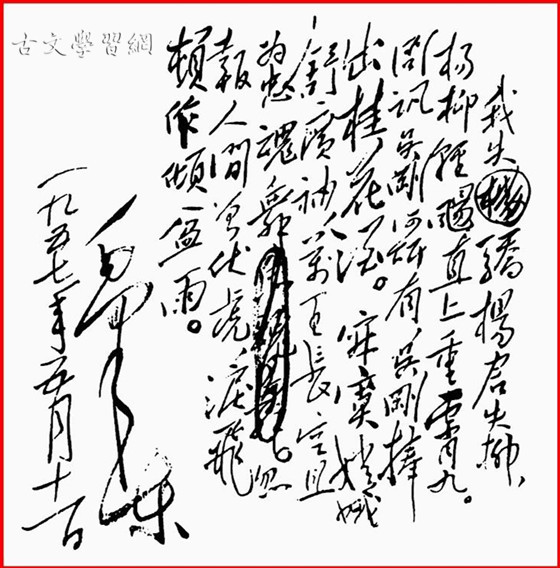 古文學習網
我失驕楊君失柳、
楊柳輕颺直上重霄九。
問訊吳剛何所有、吳剛捧
出桂花酒。寂寞嫦娥
舒廣袖、萬里長空且
為忠魂舞。忽
報人間曾伏虎、淚飛
頓作傾盆雨。
毛澤東
一九五七年五月十一日